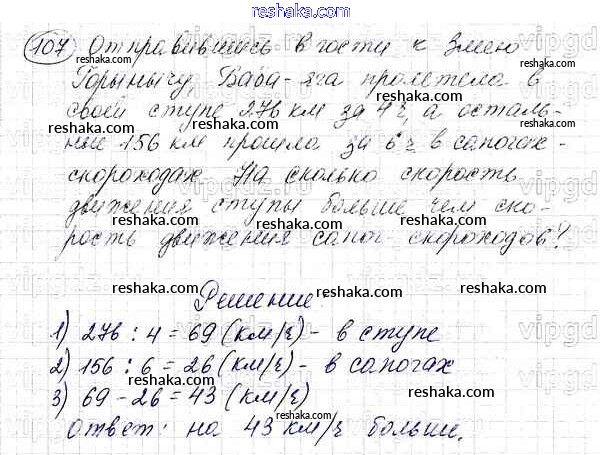 reshaka.com
107 Отправившись в гости к Змею
Горынычу, Баба-яга пролетела в
своей ступе 276 км за 4 ч, а осталь-
ные 156 км прошла за 6 ч в сапогах-
скороходах. На сколько скорость
движения ступы больше чем ско-
рость движения сапог-скороходов?
Решение:
1) 276 : 4 = 69 (км/ч) - в ступе
2) 156 : 6 = 26 (км/ч) - в сапогах
3) 69 - 26 = 43 (км/ч)
Ответ: на 43 км/ч больше.